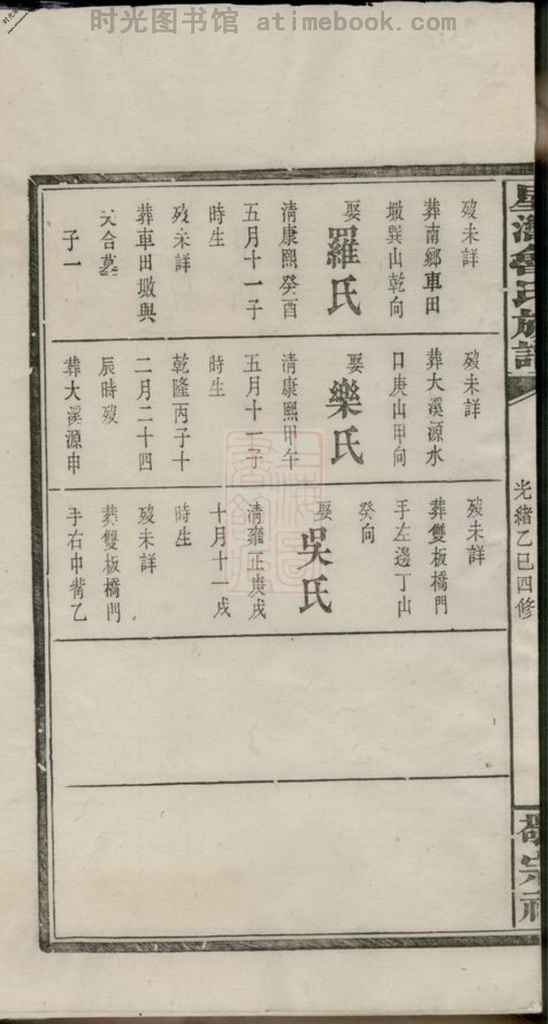 时光图书馆 atimebook.com
氏族譜
光緒乙巳四修
歿未詳
葬南鄉車田
墩巽山乾向
娶
羅氏
清康熙癸酉
五月十一子
時生
歿未詳
葬車田墩與
夫合墓
子一
歿未詳
葬大溪源水
口庚山甲向
娶
樂氏
清康熙甲午
五月十一子
時生
乾隆丙子十
二月二十四
辰時歿
葬大溪源申
歿未詳
葬雙板橋門
手左邊丁山
癸向
娶
吳氏
清雍正庚戌
十月十一戌
時生
歿未詳
葬雙板橋門
手右中嘴乙